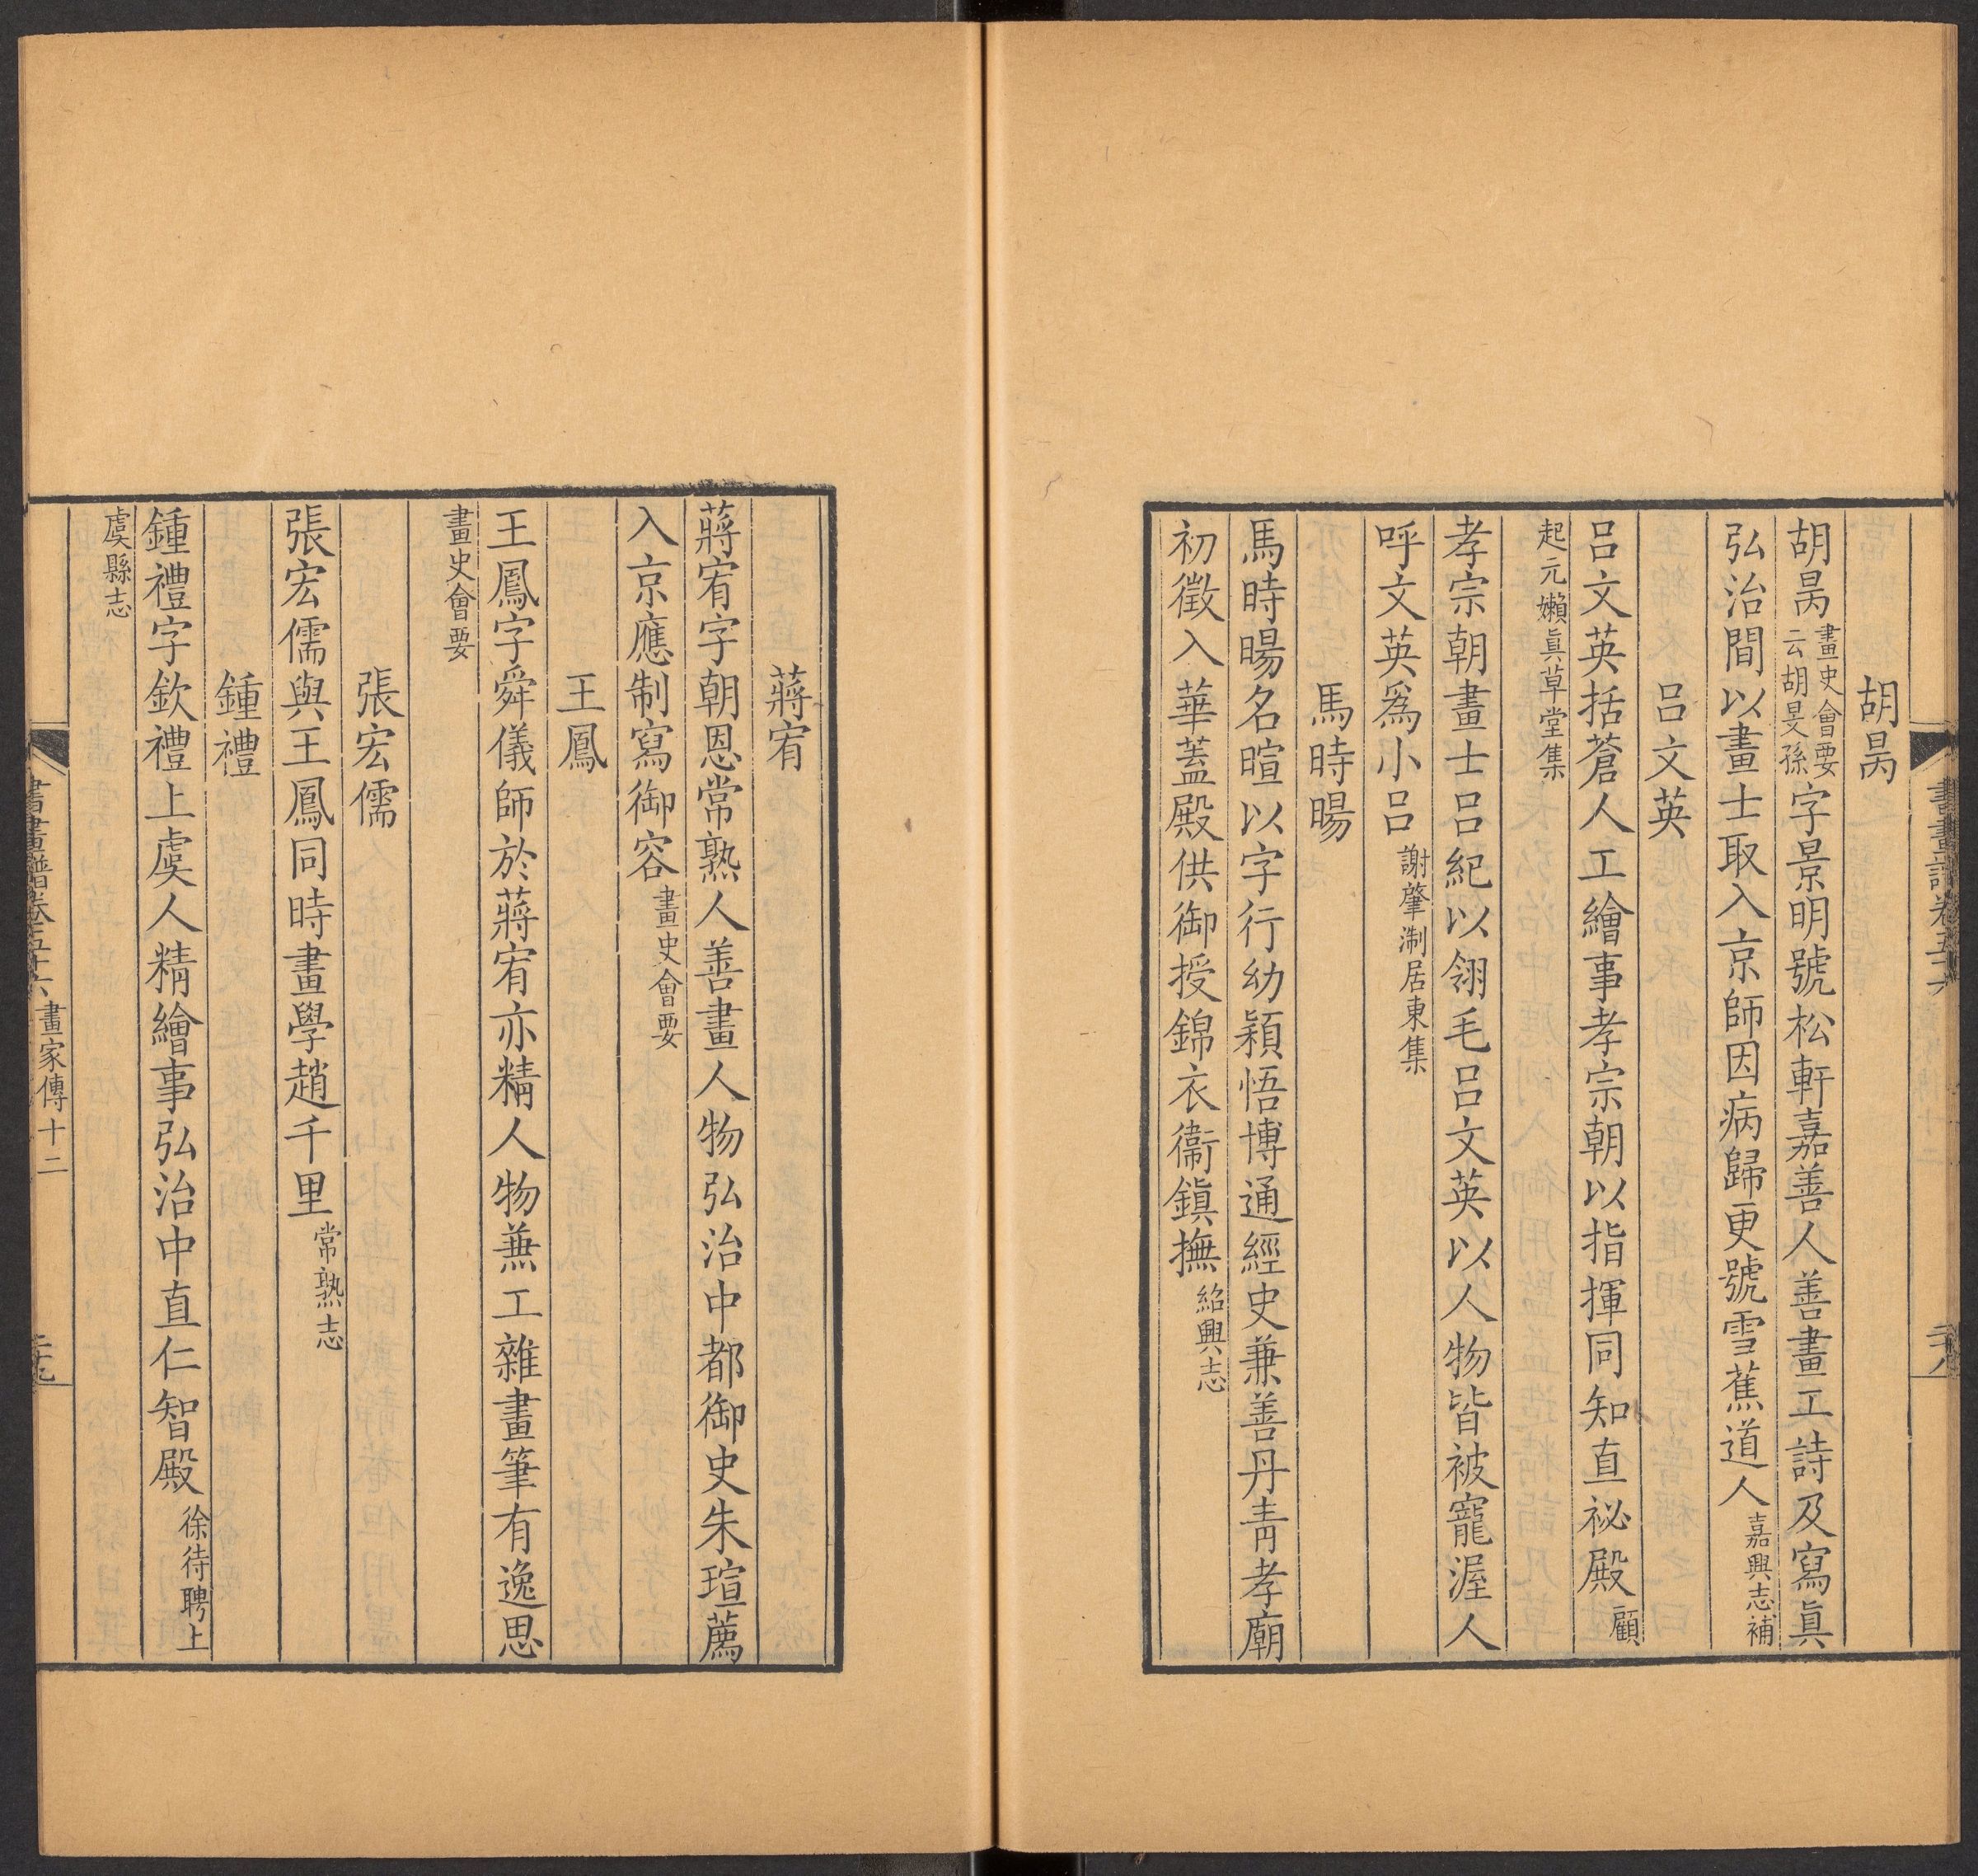 胡昺
胡昺畫史會要云胡旻孫字景明號松軒嘉善人善畫工詩及寫眞
弘治間以畫士取入京師因病歸更號雪蕉道人嘉興志補
呂文英
呂文英括蒼人工繪事孝宗朝以指揮同知直祕殿顧
起元嬾眞草堂集
孝宗朝畫士呂紀以翎毛呂文英以人物皆被寵渥人
呼文英爲小呂謝肇淛居東集
馬時暘
馬時暘名暄以字行幼穎悟博通經史兼善丹青孝廟
初徵入華蓋殿供御授錦衣衞鎭撫紹興志
蔣宥
蔣宥字朝恩常熟人善畫人物弘治中都御史朱瑄薦
入京應制寫御容畫史會要
王鳳
王鳳字舜儀師於蔣宥亦精人物兼工雜畫筆有逸思
畫史會要
張宏儒
張宏儒與王鳳同時畫學趙千里常熟志
鍾禮
鍾禮字欽禮上虞人精繪事弘治中直仁智殿徐待聘上
虞縣志
書畫譜卷五十六 畫家傳十二